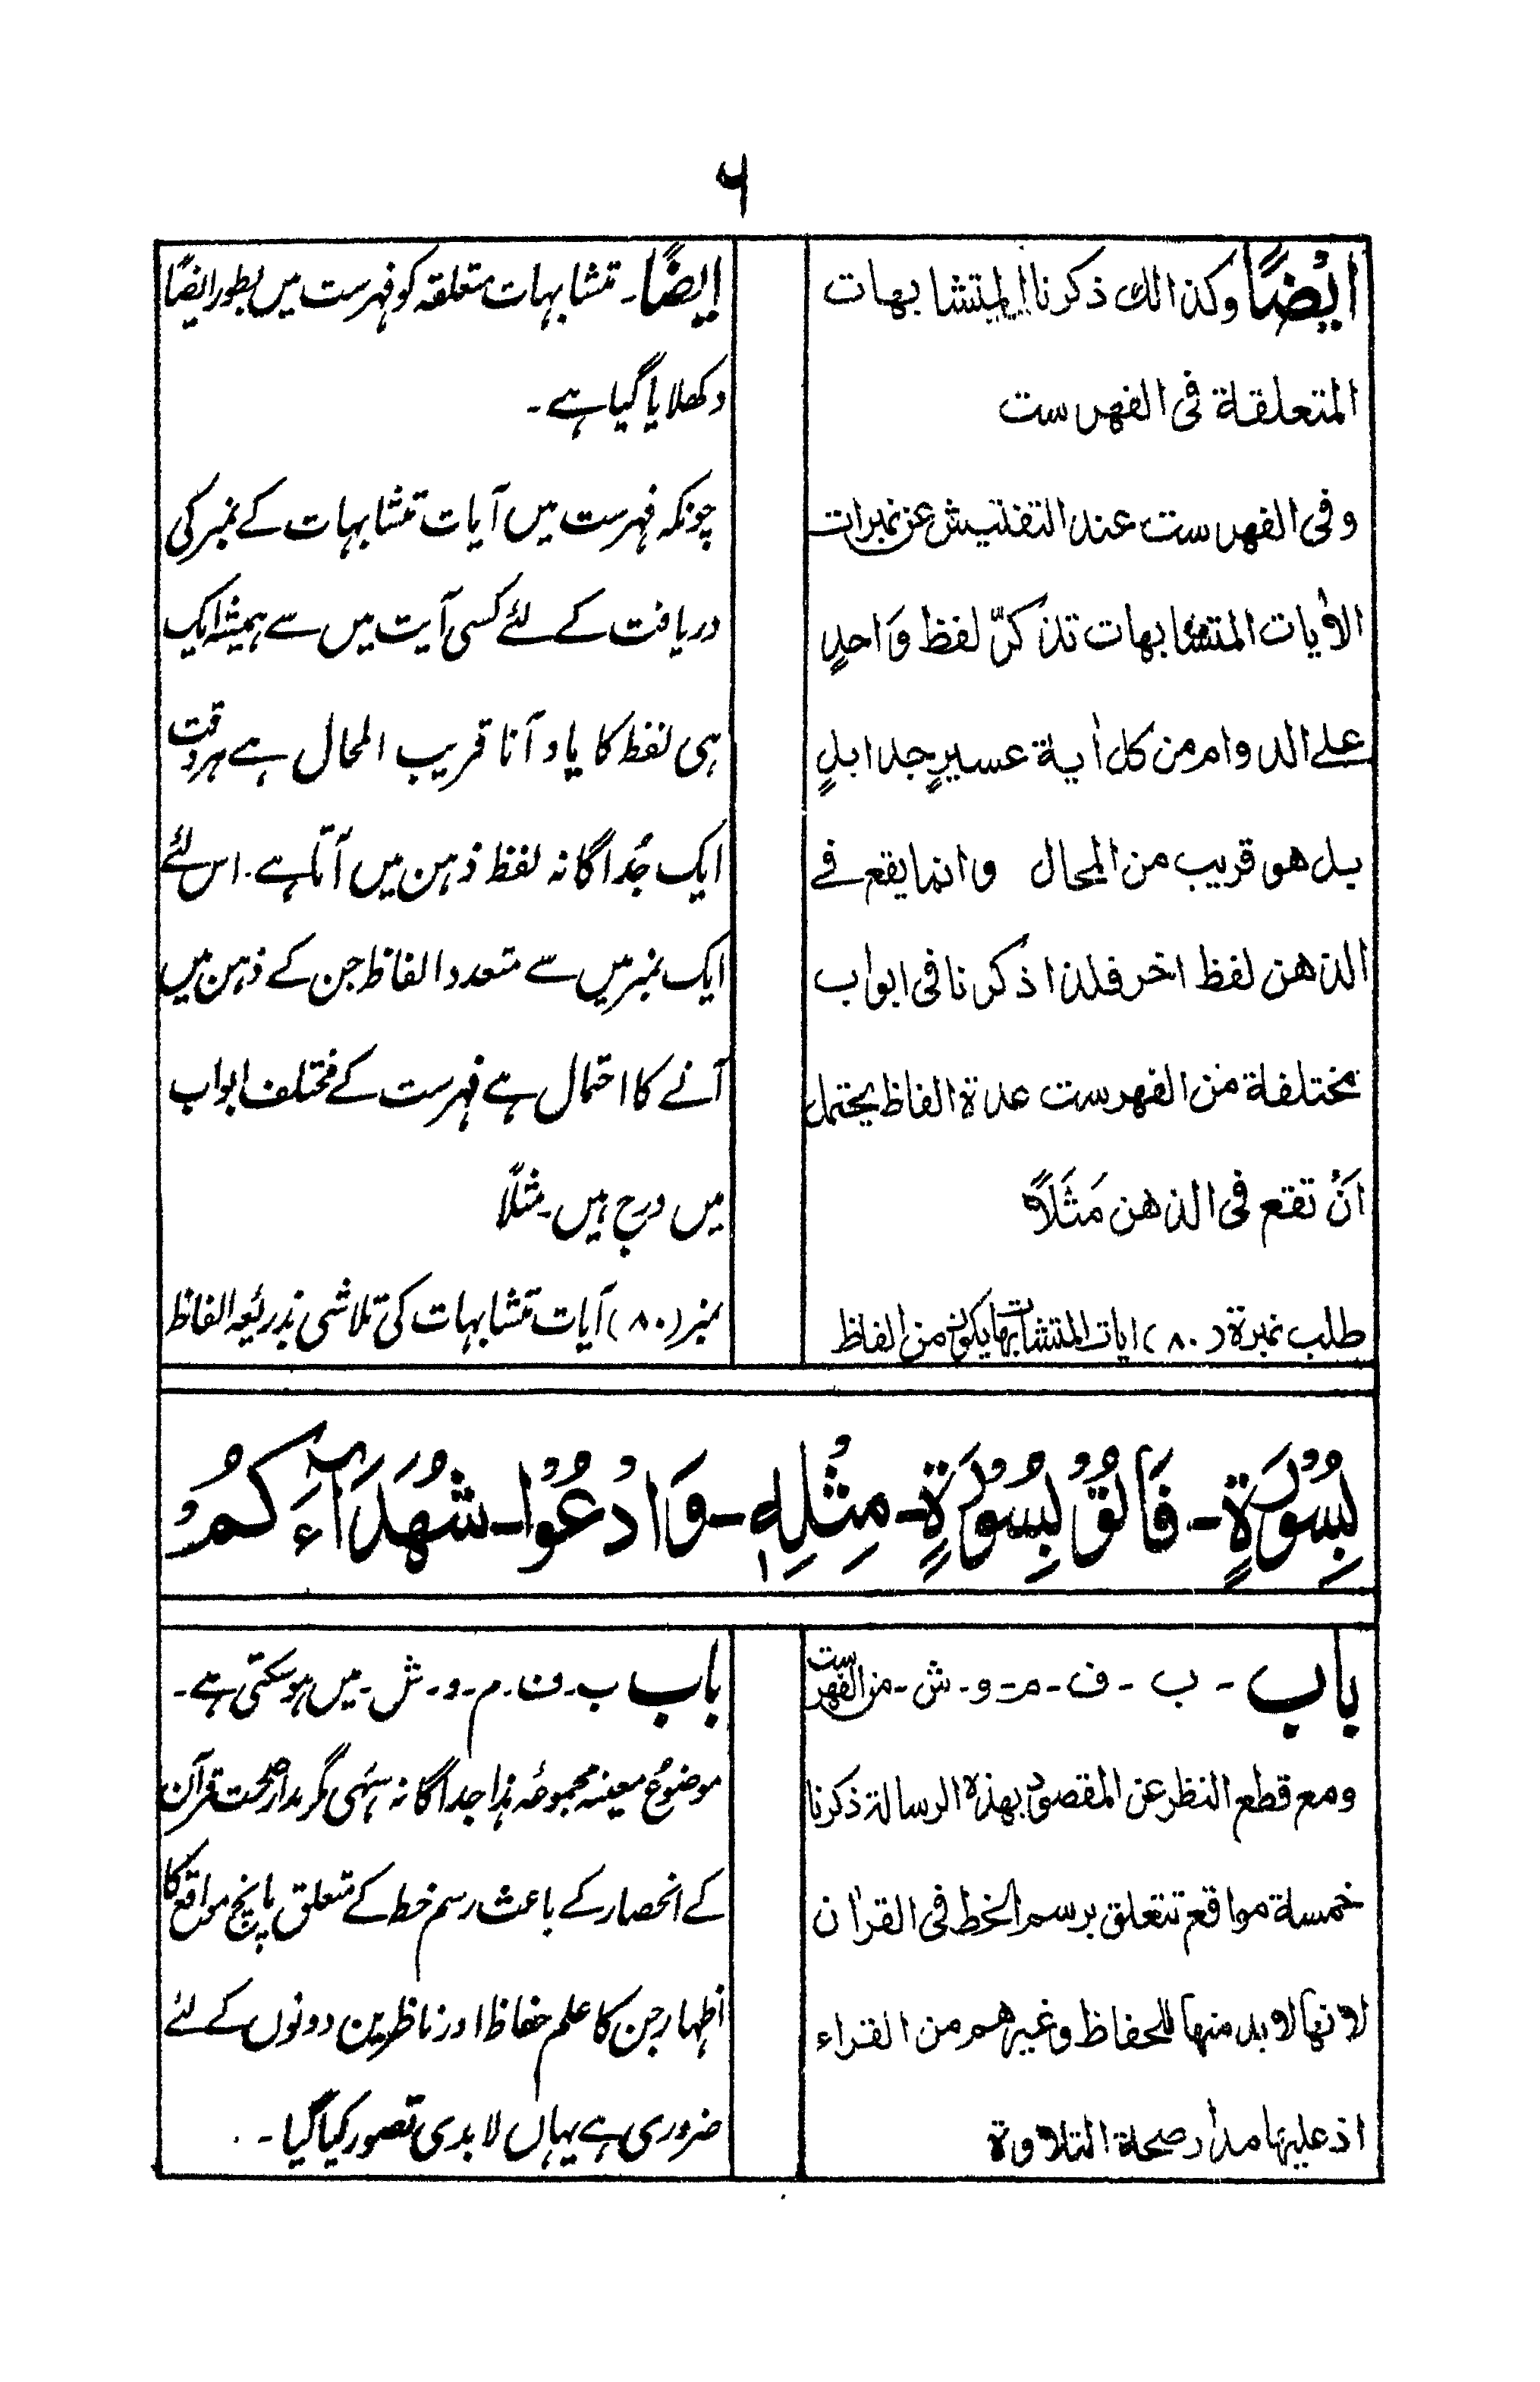 ۶
ایضًا وکذالک ذکرنا المتشابهات
المتعلقة فی الفهرست
وفی الفهرست عند التفتیش عن نمبرات
الاٰیات المتشابهات تذکرّ لفظ وَاحدٍ
علے الدوام من کل اٰیة عسیرٍ جدا بلٍ
بل هو قریب من المحال وانما یقع فے
الذهن لفظ اخر فلذا ذکرنا فی ابواب
مختلفة من الفهرست عدة الفاظ یحتمل
اَنْ تقع فی الذهن مَثَلًا
طلب نمبرة (۸۰) ایات المتشابهات یکون من الفاظ
ایضًا۔ تمشابہات متعلقہ کو فہرست میں بطور ایضًا
دکھلایا گیا ہے۔
چونکہ فہرست میں آیات تمشابہات کے نمبر کی
دریافت کے لئے کسی آیت میں سے ہمیشہ ایک
ہی لفظ کا یاد آنا قریب المحال ہے ہر وقت
ایک جُداگانہ لفظ ذہن میں آتا ہے۔ اس لئے
ایک نمبر میں سے متعدد الفاظ جن کے ذہن میں
آنے کا احتمال ہے فہرست کے مختلف ابواب
میں درج ہیں۔ مثلًا
نمبر (۸۰) آیات تمشابہات کی تلاشی بذریعہ الفاظ
بِسُوْرَةٍ۔ فَاْتُوْا بِسُوْرَةٍ۔ مِثْلِهٖ۔ وَادْعُوْا۔ شُهَدَآءَكُمْ
باب ۔ ب ۔ ف ۔ م ۔ و ۔ ش ۔ من الفهرست
ومع قطع النظر عن المقصود بهذه الرسالة ذکرنا
خمسة مواقع تتعلق برسم الخط فی القراٰن
لانها لابد منها للحفاظ وغیرهم من القراء
اذ علیها مدار صحة التلاوة
باب ب۔ ف۔ م۔ و۔ ش۔ میں ہو سکتی ہے۔
موضوع معینہ مجموعۂ ہذا جداگانہ سہی مگر مدار صحت قرآن
کے انحصار کے باعث رسم خط کے متعلق پانچ مواقع کا
اظہار جن کا علم حفاظ اور ناظرین دونوں کے لئے
ضروری ہے یہاں لابدی تصور کیا گیا۔